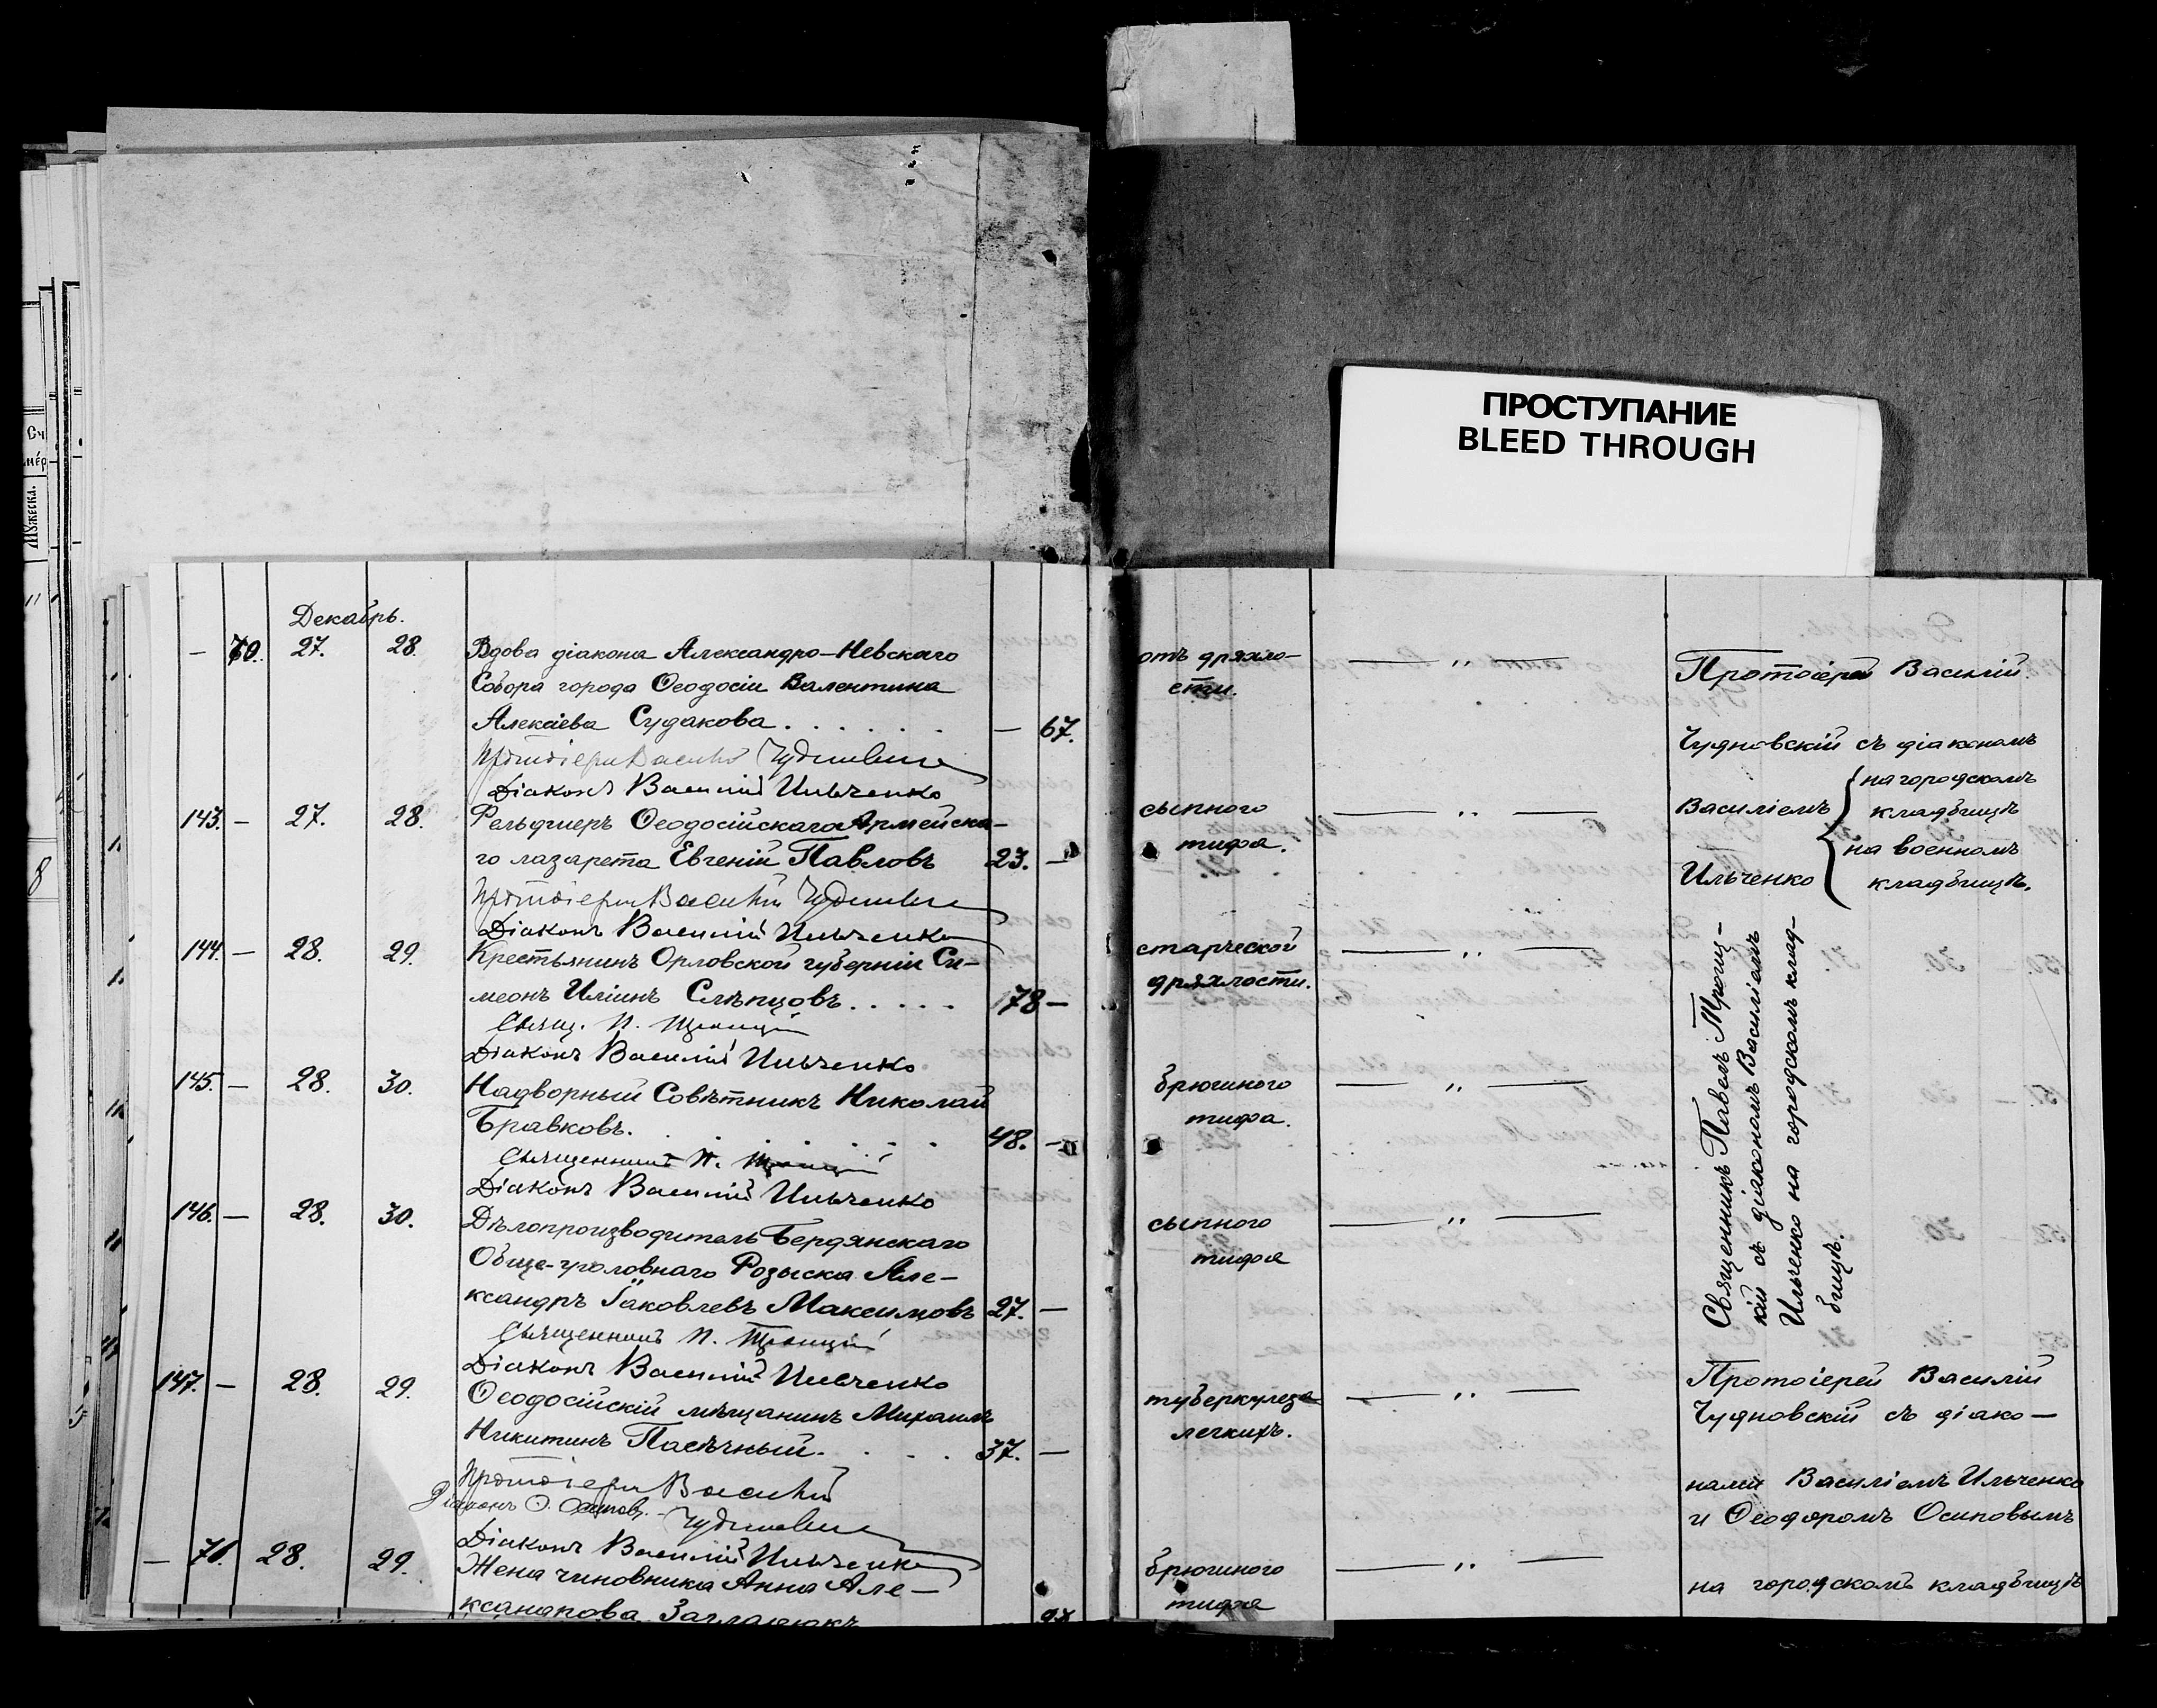 ПРОСТУПАНИЕ
BLEED THROUGH
Сч
мѣр
Мужеска.
8
Декабрь.
— 70. 27. 28. Вдова діакона Александро-Невскаго
Собора города Ѳеодосіи Валентина
Алексіева Судакова . . . . . . — 67.
Протоіерей Василій Чудновскій
Діаконъ Василій Ильченко
143. — 27. 28. Фельдшеръ Ѳеодосійскаго Армейска-
го лазарета Евгеній Павловъ 23. —
Протоіерей Василій Чудновскій
Діаконъ Василій Ильченко
144. — 28. 29. Крестьянинъ Орловской губерніи Си-
меонъ Иліинъ Слѣпцовъ. . . . . 78 —
Свящ. П. Троицкій
Діаконъ Василій Ильченко
145. — 28. 30. Надворный Совѣтникъ Николай
Бравковъ. . . . . . . . 48. —
Священникъ П. Троицкій
Діаконъ Василій Ильченко
146. — 28. 30. Дѣлопроизводитель Бердянскаго
Обще-уголовнаго Розыска Але-
ксандръ Іаковлевъ Максимовъ 27. —
Священникъ П. Троицкій
Діаконъ Василій Ильченко
147. — 28. 29. Ѳеодосійскій мѣщанинъ Михаилъ
Никитинъ Пасѣчный. . . . 37. —
Протоіерей Василій
Діаконъ Ѳ. Осиповъ.
Чудновскій
Діаконъ Василій Ильченко
— 71. 28. 29. Жена чиновника Анна Але-
ксандрова
отъ дряхло-
сти.
— „ —
сыпного
тифа.
— „ —
старческой
дряхлости.
— „ —
брюшного
тифа.
— „ —
сыпного
тифа
— „ —
туберкулеза
легкихъ.
— „ —
брюшного
тифа
— „ —
Протоіерей Василій
Чудновскій съ діакономъ
Василіемъ
Ильченко
на городскомъ
кладбищѣ
на военномъ
кладбищѣ.
Священникъ Павелъ Троиц-
кій съ діакономъ Василіемъ
Ильченко на городскомъ клад-
бищѣ.
Протоіерей Василій
Чудновскій съ діако-
нами Василіемъ Ильченко
и Ѳеодоромъ Осиповымъ
на городскомъ кладбищѣ